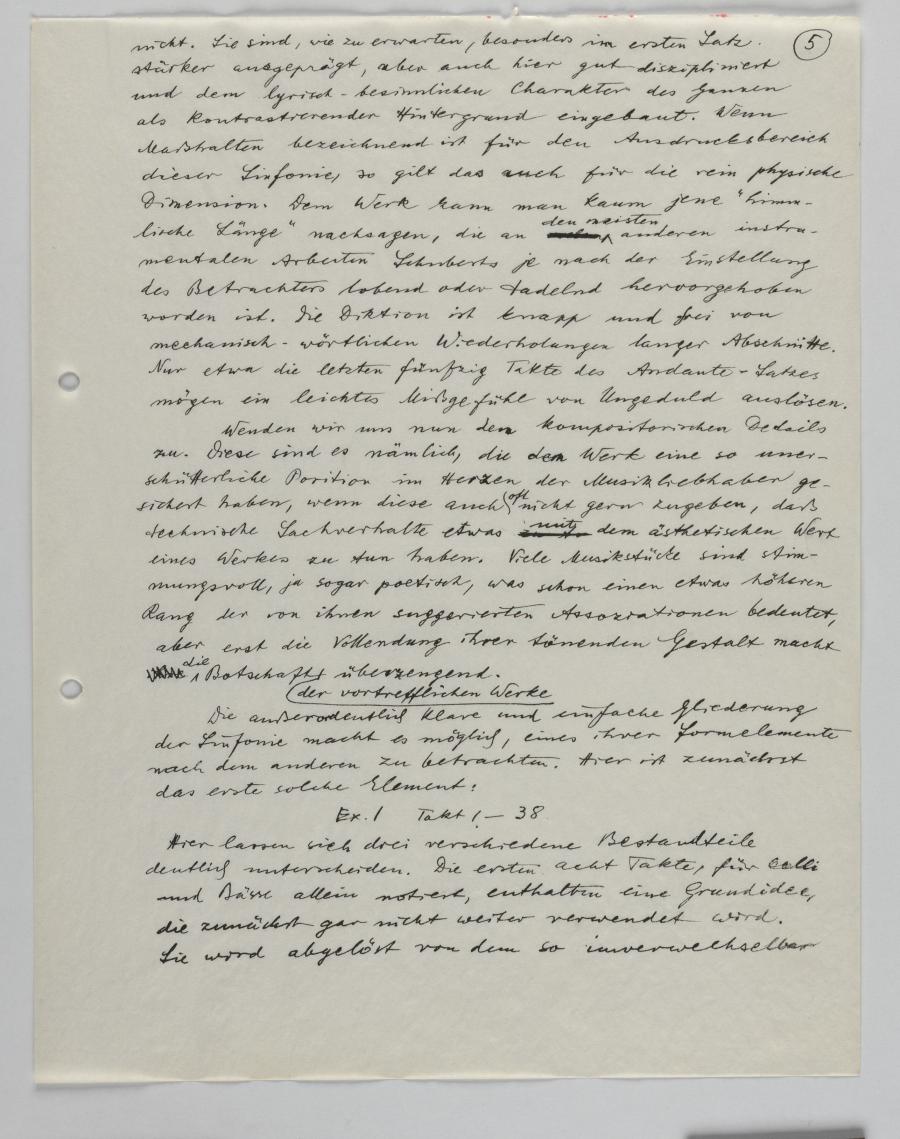 5
nicht. Sie sind, wie zu erwarten, besonders im ersten Satz
stärker ausgeprägt, aber auch hier gut diszipliniert
und dem lyrisch-besinnlichen Charakter des Ganzen
als kontrastierender Hintergrund eingebaut. Wenn
Maßhalten bezeichnend ist für den Ausdrucksbereich
dieser Sinfonie, so gilt das auch für die rein physische
Dimension. Dem Werk kann man kaum jene "himm-
lische Länge" nachsagen, die an den meisten anderen instru-
mentalen Arbeiten Schuberts je nach der Einstellung
des Betrachters lobend oder tadelnd hervorgehoben
worden ist. Die Diktion ist knapp und frei von
mechanisch-wörtlichen Wiederholungen langer Abschnitte.
Nur etwa die letzten fünfzig Takte des Andante-Satzes
mögen ein leichtes Mißgefühl von Ungeduld auslösen.
Wenden wir uns nun den kompositorischen Details
zu. Diese sind es nämlich, die dem Werk eine so uner-
schütterliche Position im Herzen der Musikliebhaber ge-
sichert haben, wenn diese auch oft nicht gern zugeben, daß
technische Sachverhalte etwas mit dem ästhetischen Wert
eines Werkes zu tun haben. Viele Musikstücke sind stim-
mungsvoll, ja sogar poetisch, was schon einen etwas höheren
Rang der von ihnen suggerierten Assoziationen bedeutet,
aber erst die Vollendung ihrer tönenden Gestalt macht
die Botschaft überzeugend.
der vortrefflichen Werke
Die außerordentlich klare und einfache Gliederung
der Sinfonie macht es möglich, eines ihrer Formelemente
nach dem anderen zu betrachten. Hier ist zunächst
das erste solche Element:
Ex. 1 Takt 1 – 38
Hier lassen sich drei verschiedene Bestandteile
deutlich unterscheiden. Die ersten acht Takte, für Celli
und Bässe allein notiert, enthalten eine Grundidee,
die zunächst gar nicht weiter verwendet wird.
Sie wird abgelöst von dem so unverwechselbar